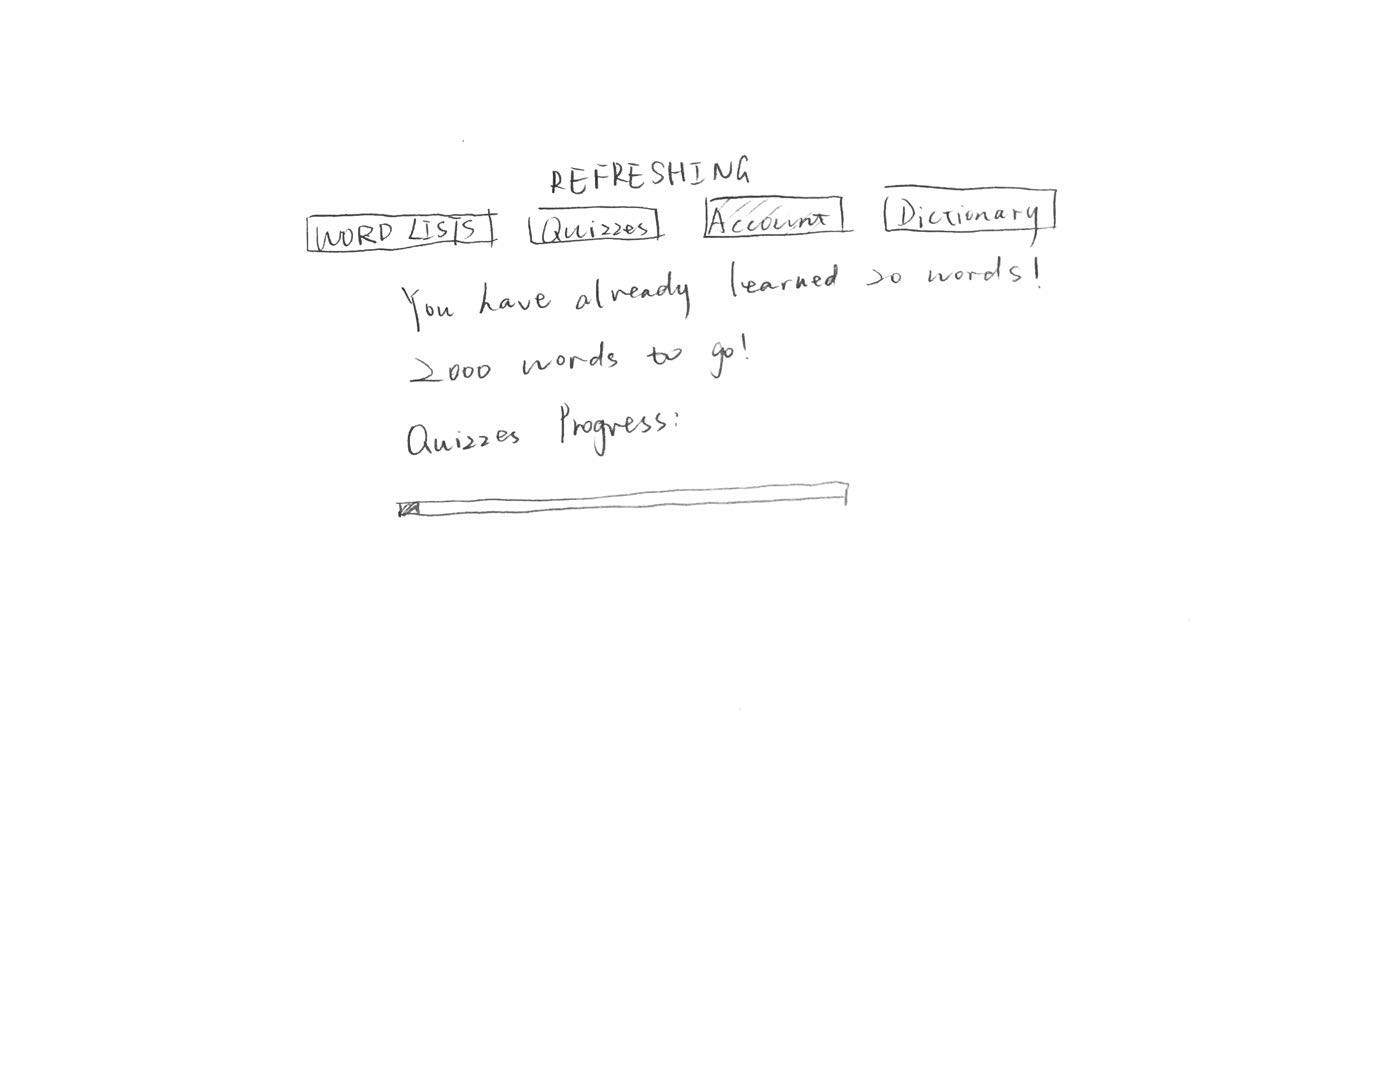 REFRESHING
WORD LISTS Quizzes Account Dictionary
You have already learned 20 words!
2000 words to go!
Quizzes Progress: